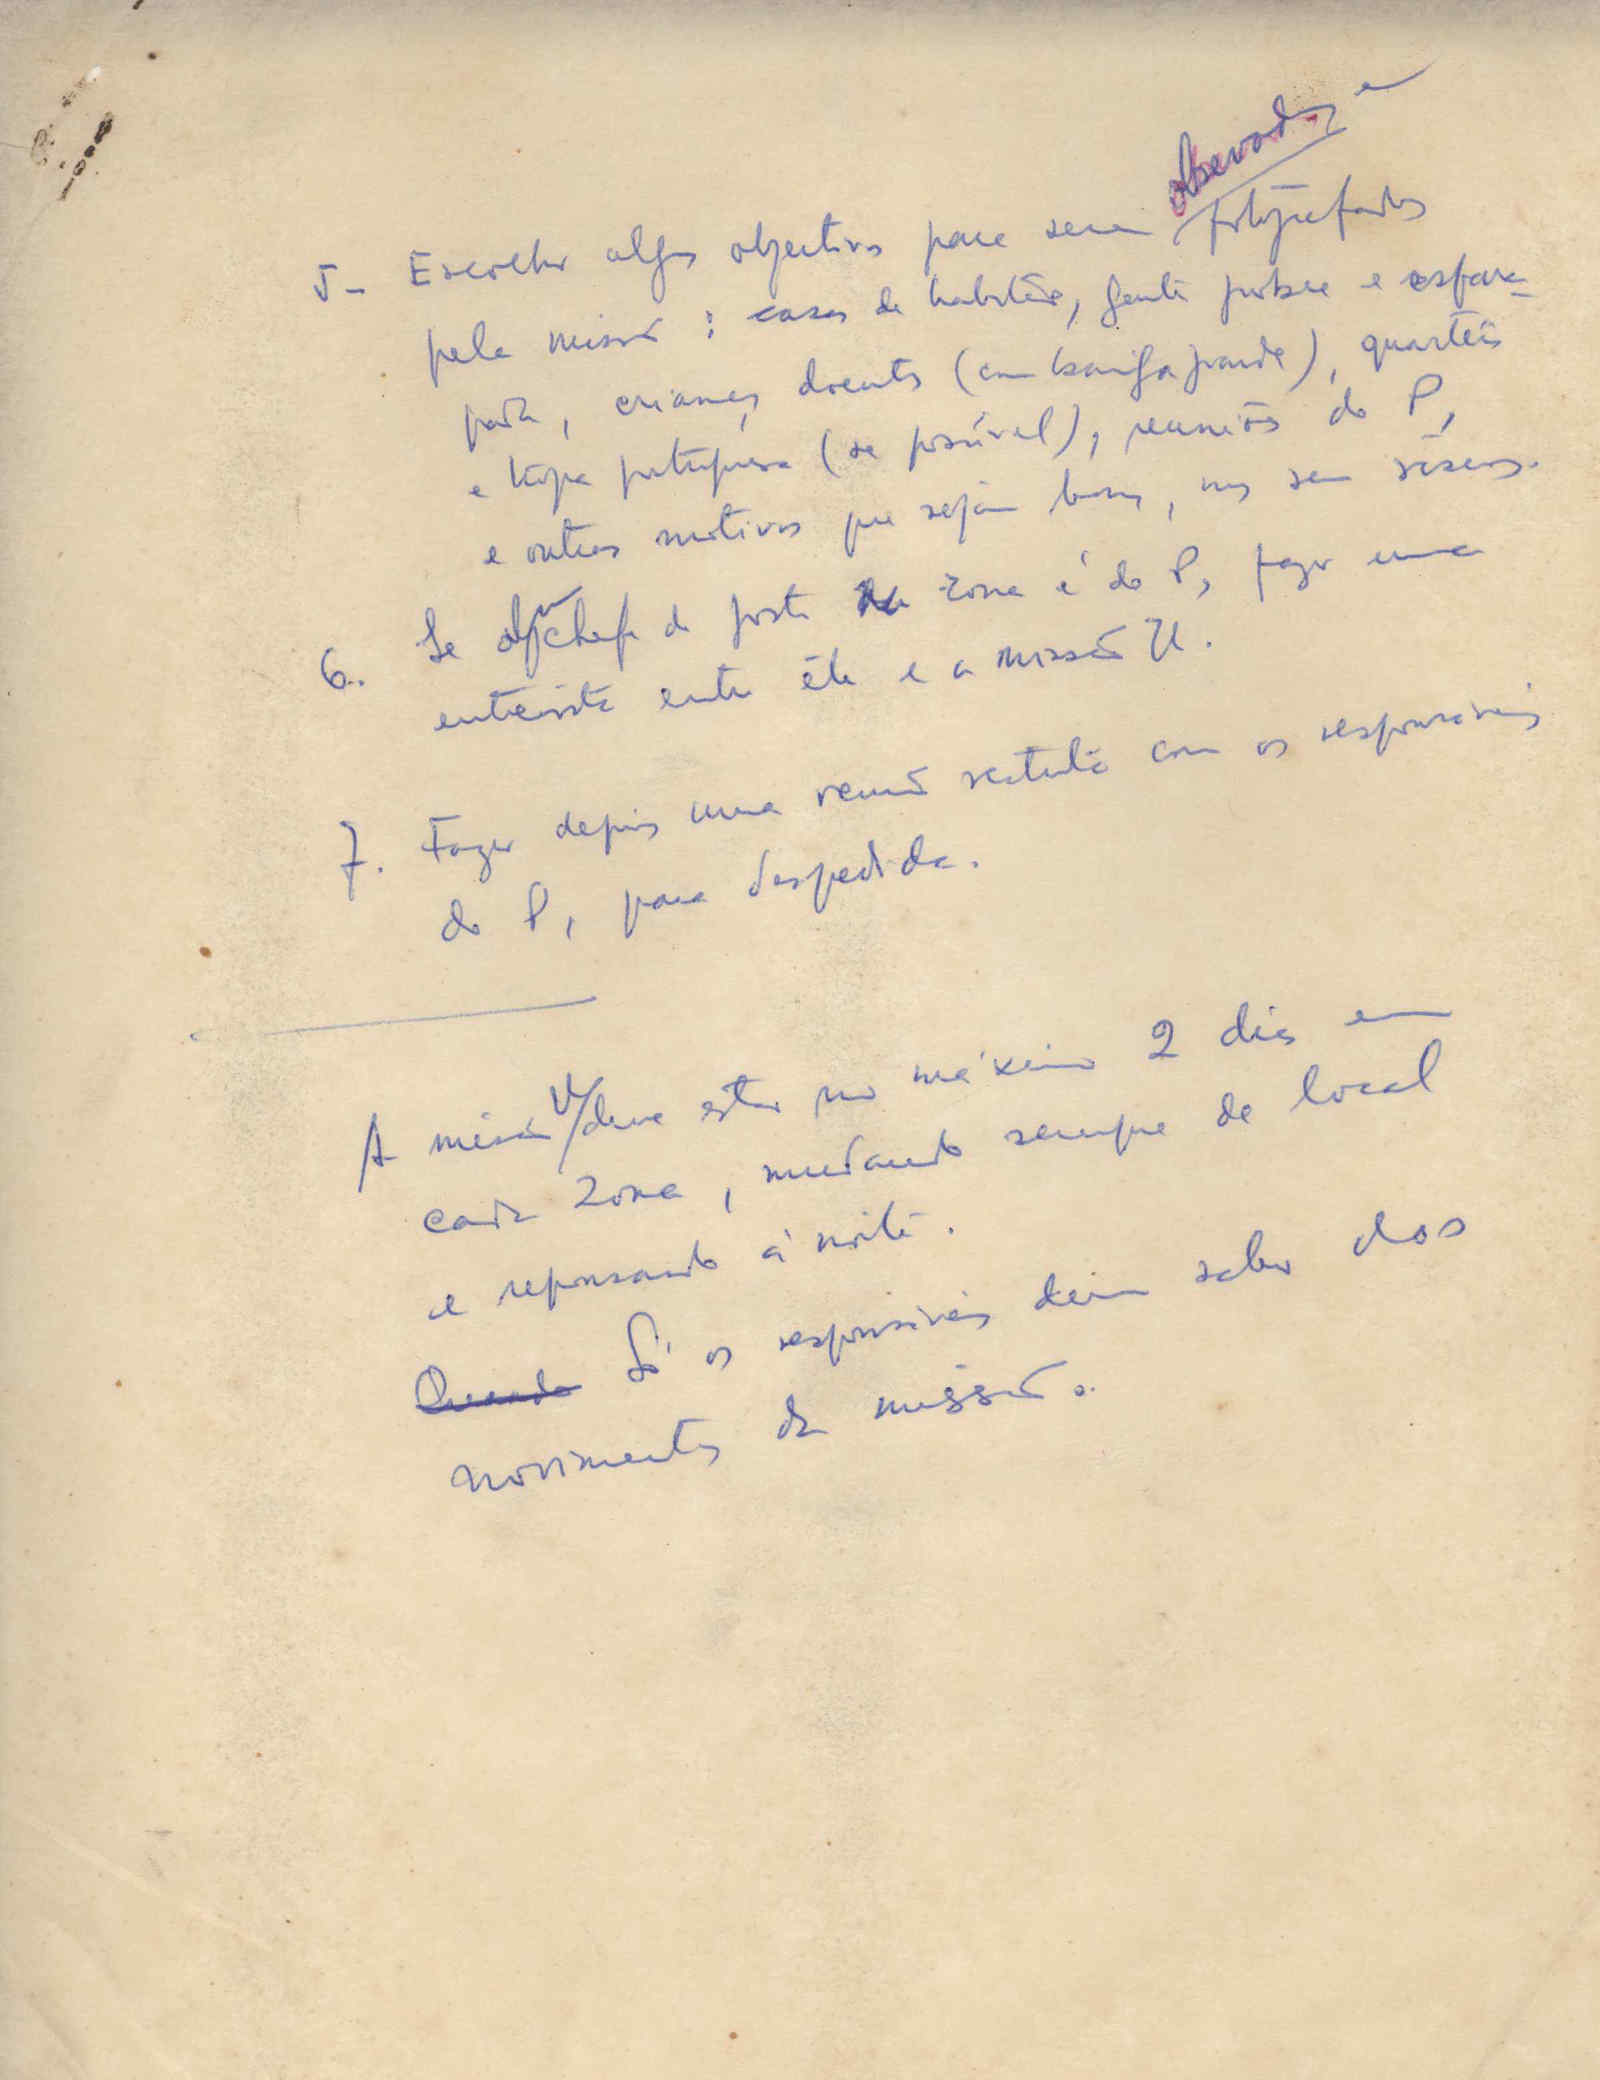 observados e
5- Escolher alguns objectivos para serem fotografados
pela missão: casas de habitação, gente pobre e esfarra-
pada, crianças doentes (com barriga grande), quarteis
e tropa portuguesa (se possível), reuniões do P,
e outros motivos que sejam bons, mas sem riscos.
6. Se algum chefe de posto da zona é do P, fazer uma
entrevista entre êle e a missão U.
7. Fazer depois uma reunião restrita com os responsáveis
do P, para despedida.
A missão U deve estar no máximo 2 dias em
cada zona, mudando sempre de local
e repousando à noite.
Quando Só os responsáveis devem saber dos
movimentos da missão.